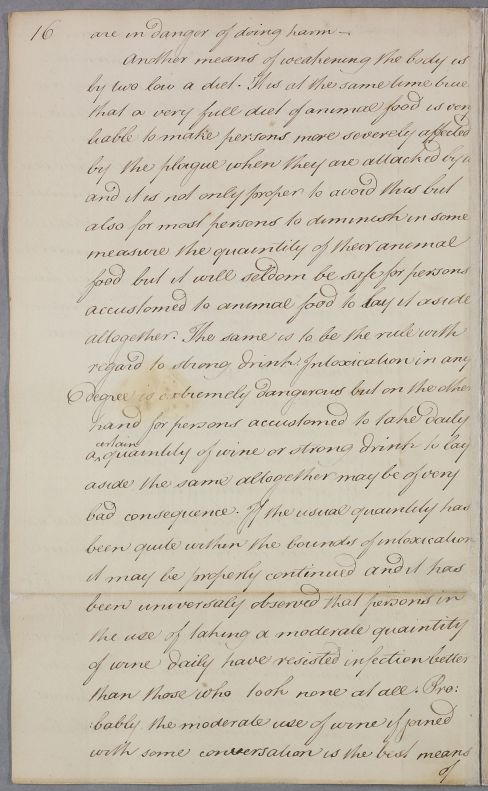 16 are in danger of doing harm —
Another means of weakening the body is
by two low a diet. It is at the same time true
that a very full diet of animal food is very
liable to make persons more severely affected
by the plague when they are attacked by it
and it is not only proper to avoid this but
also for most persons to diminish in some
measure the quaintity of their animal
food but it will seldom be safe for persons
accustomed to animal food to lay it aside
altogether. The same is to be the rule with
regard to strong drink. Intoxication in any
degree is extremely dangerous but on the other
hand for persons accustomed to take daily
certain
a quaintity of wine or strong drink to lay
aside the same altogether may be of very
bad consequence. If the usual quantity has
been quite within the bounds of intoxication
it may be properly continued and it has
been universaly observed that persons in
the use of taking a moderate quaintity
of wine daily have resisted infection better
than those who took none at all. Pro:
:bably the moderate use of wine if joined
with some conversation is the best means
of